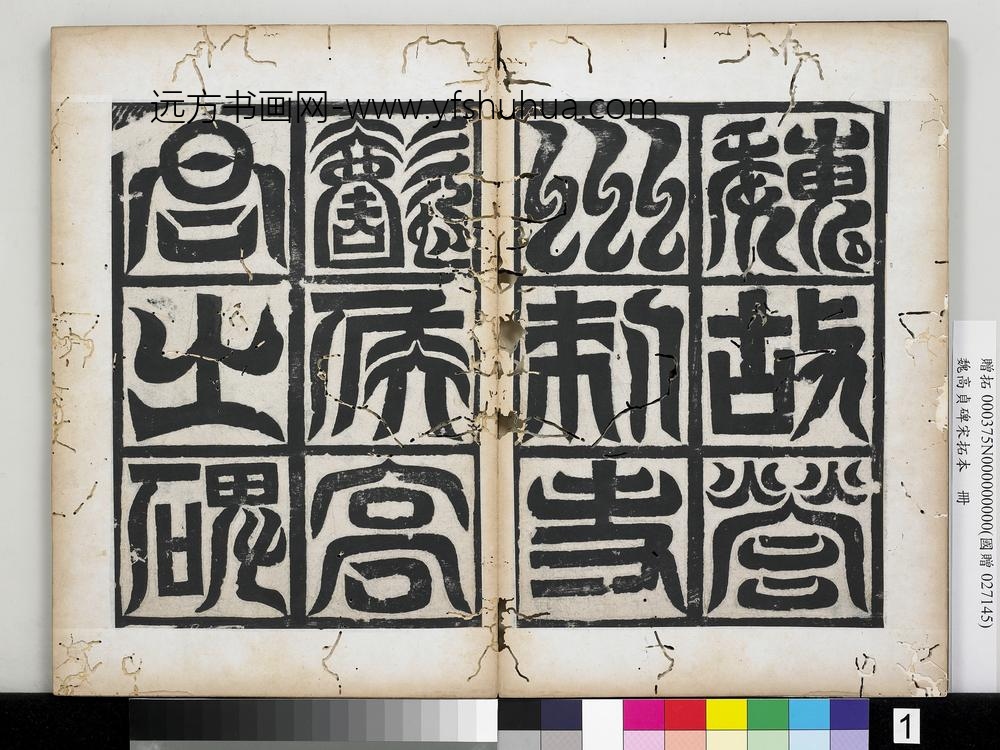 远方书画网-www.yfshuhua.com
魏故營
州刺史
懿侯高
君之碑
贈拓 000375N000000000(國贈 027145)
魏高貞碑宋拓本 冊
1